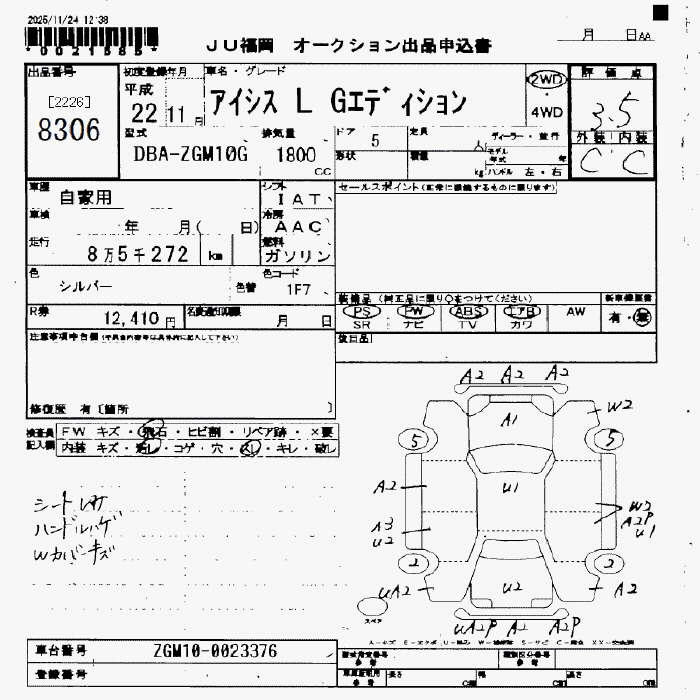 2025/11/24 12:38
*0021585*
JU福岡 オークション出品申込書
月 日AA
出品番号
[2226]
8306
初度登録年月
平成
22 11 月
車名・グレード
アイシス L Gエディション
2WD
・
4WD
評価点
3.5
外装 内装
C C
型式
DBA-ZGM10G
排気量
1800
CC
ドア 5
定員
人
ディーラー・並行
モデル
年式 年
形状
積載
kg
ハンドル 左・右
車歴
自家用
シフト
IAT
車検
年 月( 日)
冷房
AAC
走行
8万5千272 km
燃料
ガソリン
色
シルバー
色替
色コード
1F7
R券
12,410 円
名義変更期限
月 日
セールスポイント(正常に機能するものに限ります)
装備品 (純正品に限り○をつけてください)
PS PW ABS エアB AW
SR ナビ TV カワ
新車時保証書
有・無
後日品
注意事項申告欄
修復歴 有〔箇所 〕
検査員
記入欄
FW キズ・飛石・ヒビ割・リペア跡・×要
内装 キズ・汚レ・コゲ・穴・スレ・キレ・破レ
シート
ハンドルハゲ
Wカバーキズ
A2 A2 A2
A1
W2
5
5
U1
A2
A3
U2
W2
A2P
U1
2
2
UA2
U2
A2
UA2P A2 A2P
スペア
車台番号
ZGM10-0023376
登録番号
型式指定番号
類別区分番号
長さ
幅
高さ